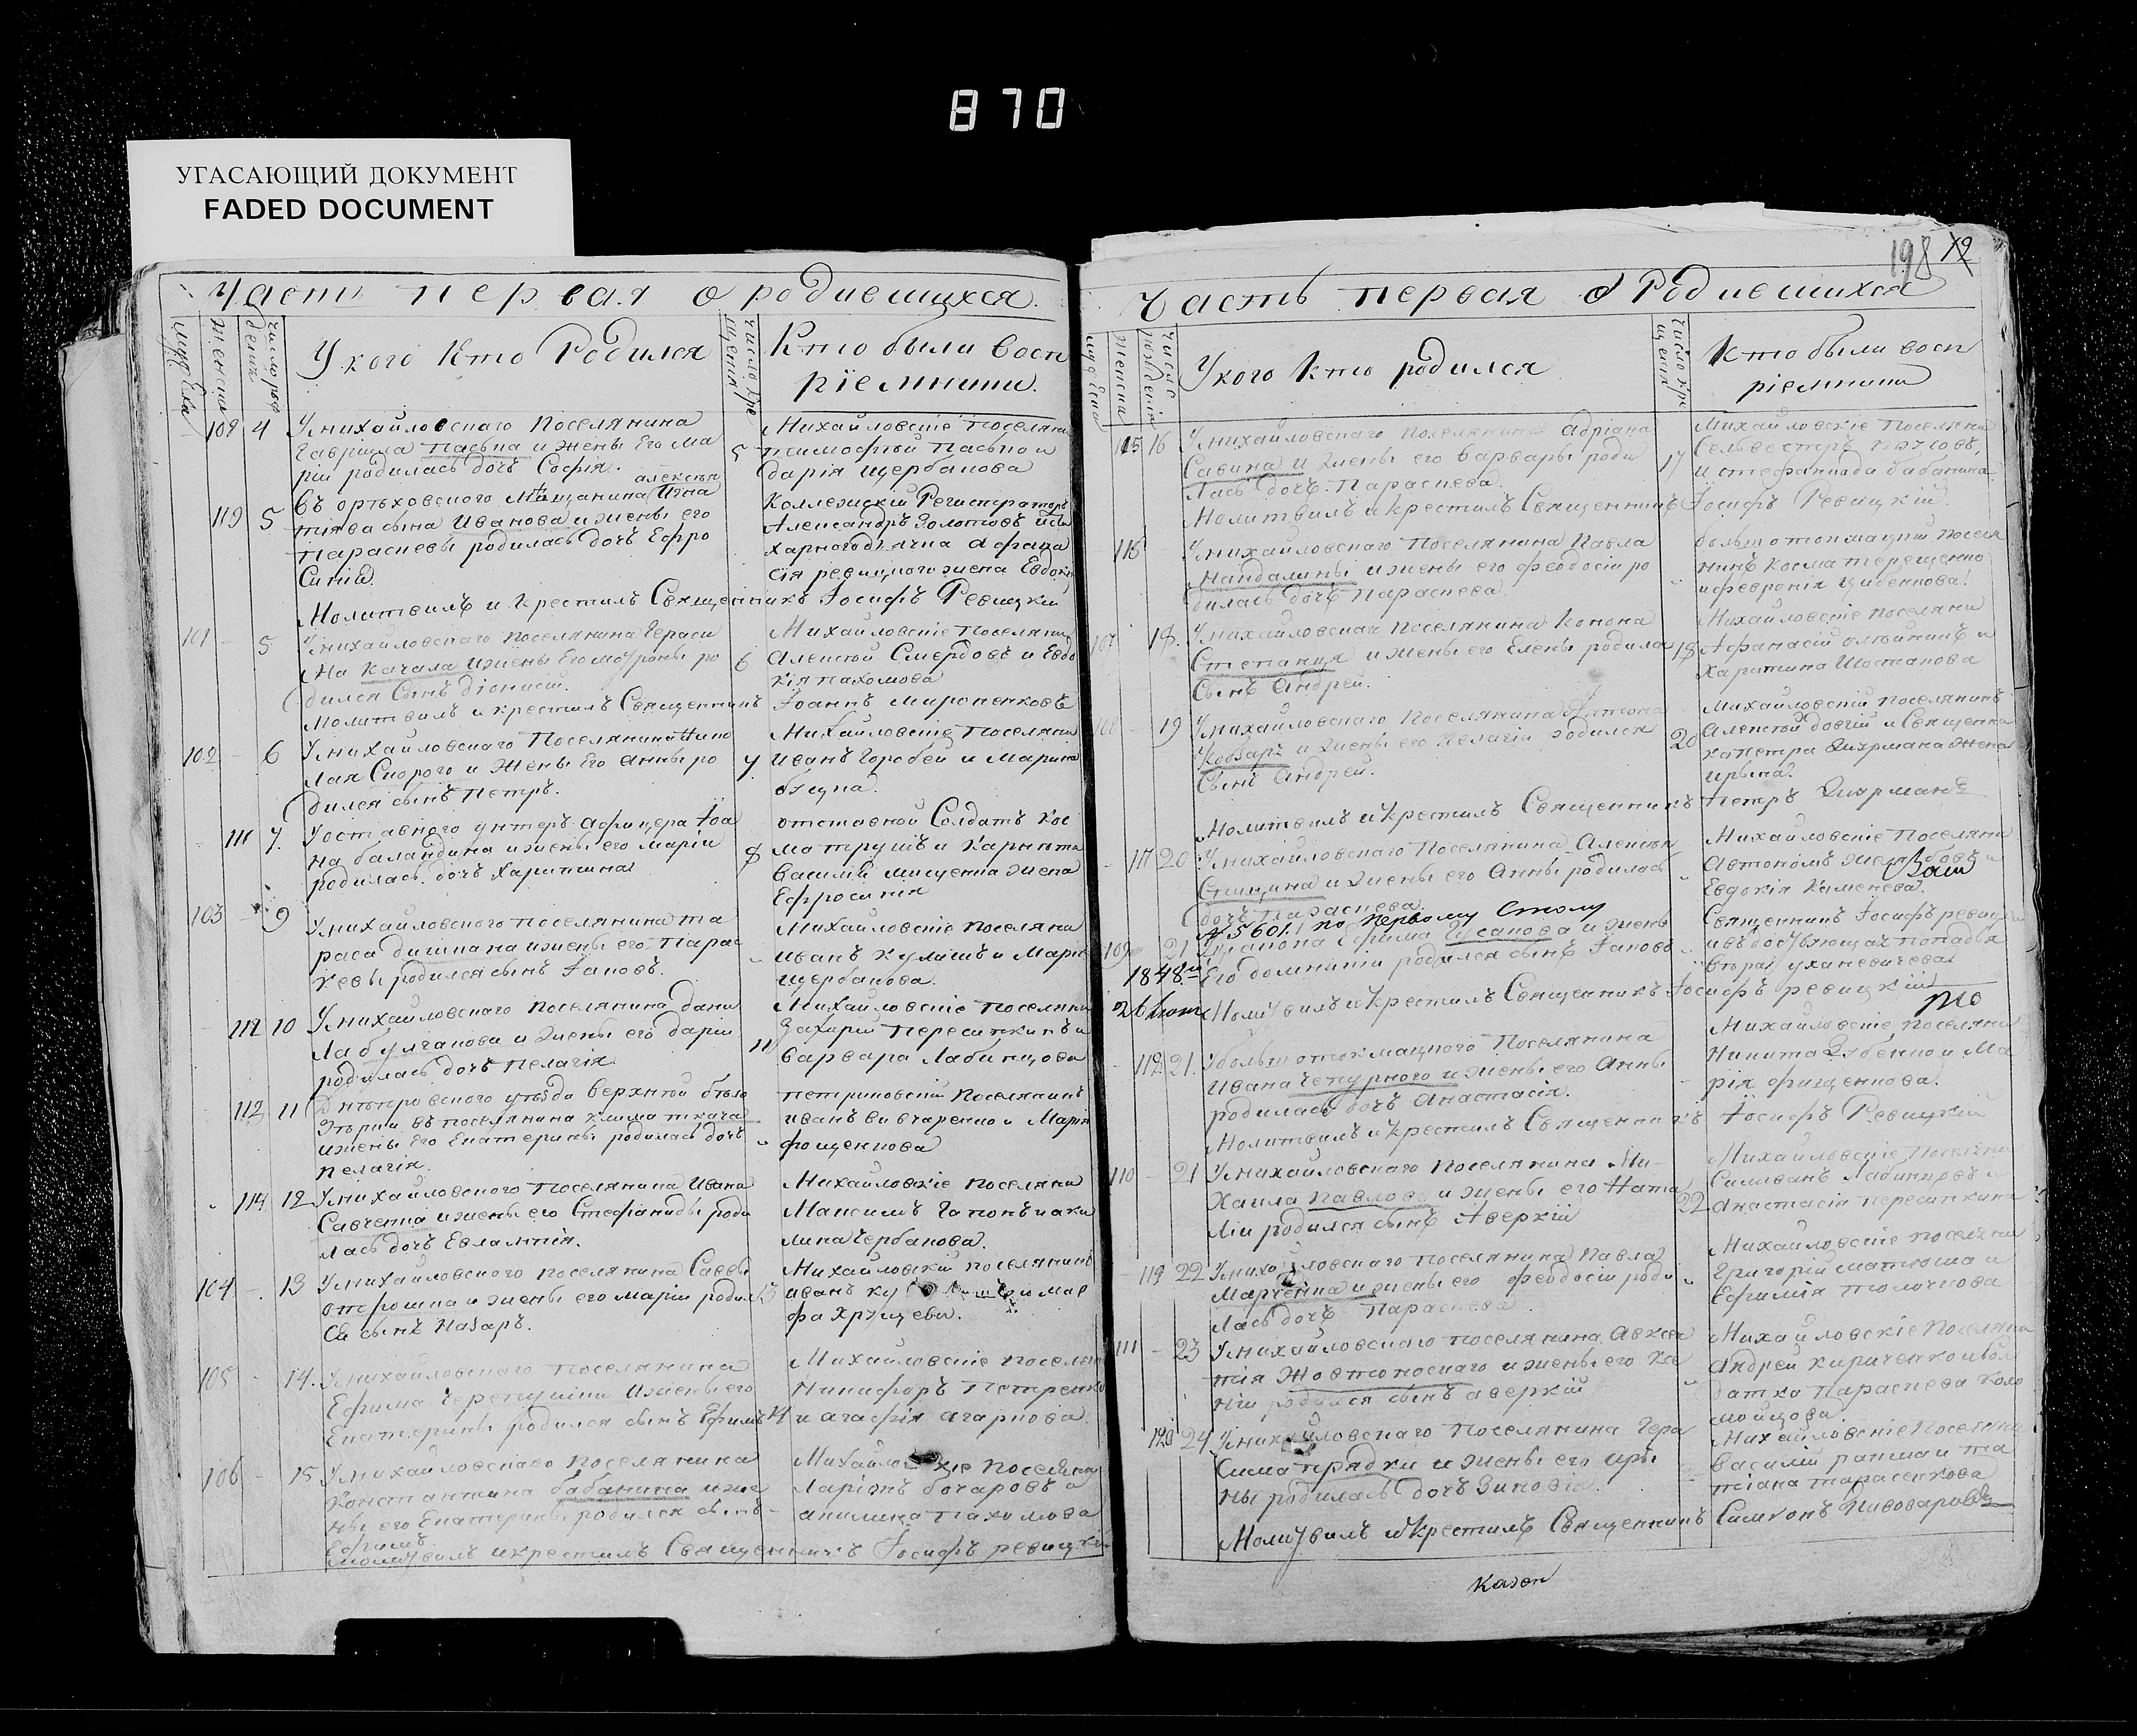 870
УГАСАЮЩИЙ ДОКУМЕНТ
FADED DOCUMENT
Часть первая о родившихся.
У кого Кто Родился
Кто были восп
рїемники.
109 4 У михайловскаго Поселянина
Гавриила Паська и жены Его Ма
рїи родилась дочь Софїя.
5
Михайловскїе поселяни
тимофей Паско и
дарїя щербакова
алексѣя
119 5
въ орѣховского Мѣщанина Игна
тїева сына Иванова и жены его
Параскевы родилась дочь Ефро
Синїя
Коллежскїй Регистраторъ
Александръ Золотовъ
Афана
сїя ревицкого жена Евдокїя
Молитвилъ и крестилъ Священникъ Іосифъ Ревицкїй
101 - 5 Умихайловскаго поселянина Гераси
Ма Качала и жены Его мотроны ро
дился Сынъ діонисій.
6
Михайловскїе Поселяни
Алексѣй Смердовъ и Евдо
кїя пахомова
Молитвилъ и крестилъ Священникъ Іоаннъ Мироненковъ
102 - 6 Умихайловскаго Поселянина Нико
лая Скорого и жены Его анны ро
дился сынъ петръ.
Михайловскїе поселяни
иванъ Горобей и Марина
111 7. Уоставного унтеръ афицера Іоа
на баландина и жены его марїи
родилась дочь Харитина
8
отставной Солдатъ Кос
ма
василїя мищенка жена
Ефросинїя
103 - 9 Умихайловского поселянина та
раса дишкана и жены его Парас
кевы родился сынъ Іаковъ.
Михайловскїе поселяни
иванъ кулишъ и Марїя
щербакова.
112 10 Умихайловского поселянина дани
ла булгакова и жены его дарїи
родилась дочь пелагїя
11
Михайловскїе поселяни
Захарїй Пересипкинъ и
варвара Лабинцова
112 11 Днѣпровского уѣзда верхней бѣло
поселянина клима ткача
и жены Его Екатерины родилась дочь
пелагїя.
петриковскїй поселянинъ
иванъ вивчаренко и Марїя
фощенкова
114 12 Умихайловского поселянина ивана
Савченка и жены его Стефаниды роди
лась дочь Евлампїя.
Михайловскїе поселяни
Максимъ Гапонъ и аку
лина Чербакова.
104 -. 13 Умихайловского поселянина Саввы
отрошка и жены его марїи родил
ся сынъ Назаръ.
13
Михайловскїй поселянинъ
иванъ
фа Хрущева.
105 - 14. Умихайловского поселянина
Ефима Черепушки и жены его
Екатерины родился сынъ Ефимъ
14
Михайловскїе поселяни
Никифоръ Петренко
и агафїя агаркова
106 - 15 Умихайловскаго поселянина
Константина бабанина и же
ны его Екатерины родился сынъ
Ефимъ
Михайловскїе поселяни
Ларїонъ бочаровъ и
акилина Пахомова
молитвилъ и крестилъ Священникъ Іосифъ ревицкїй
198 12
Часть первая о Родившихся
У кого Кто родился
Кто были восп
рїемники
115 16 Умихайловскаго поселянина адрїана
Савина и жены его варвары роди
лась дочь Параскева.
17
Михайловскїе поселяни
Сельвестръ
и стефанида бабанина
Молитвилъ и крестилъ Священникъ Іосифъ Ревицкїй
116 Умихайловскаго поселянина Павла
Мандалины и жены его феодосїи ро
дилась дочь Параскева.
большотокмацкїй поселя
нинъ косма терещенко
и февронїя цибенкова.
107 18. Умихайловскаго поселянина Конона
Степанця и жены его Елены родился
Сынъ андрей.
18
Михайловскїе поселяни
Афанасїй олейникъ и
Харитина Шостакова
108 - 19 Умихайловскаго поселянина
Кобзаря и жены его пелагїи родился
Сынъ андрей.
20
Михайловскїй поселянинъ
алексѣй довгїй и Священни
ка петра жена
ирина.
Молитвилъ и крестилъ Священникъ петръ
117 20 Умихайловскаго поселянина Алексѣя
Спицина и жены его Анны родилась
дочь параскева.
Михайловскїе поселяни
Автономъ
Евдокїя Каменева.
№ 5601. по первому столу
109 21 Удиакона Ефима Гусакова и жены
Его домникїи родился сынъ Іаковъ
Священникъ Іосифъ ревицкїй
попадья
вѣра уханевичева
1848
Молитвилъ и крестилъ Священникъ Іосифъ ревицкїй
118 21. Убольшотокмацкого поселянина
ивана Чепурного и жены его Анны
родилась дочь анастасїя.
Михайловскїе поселяни
Никита Зубенко и Ма
рїя фищенкова.
Молитвилъ и крестилъ Священникъ Іосифъ Ревицкїй
110 - 21 Умихайловскаго поселянина Ми-
хаила Павлова и жены его Ната
лїи родился сынъ Аверкїй
22
Михайловскїе поселяни
Силиванъ Лабинцовъ и
анастасїя пересипкина
119 22 Умихайловскаго поселянина Павла
Марченка и жены его феодосїи роди
лась дочь Параскева.
Михайловскїе поселяни
Григорїй матюша и
Ефимїя толочкова
111 - 23 Умихайловскаго поселянина Авксен
тїя Жовтоноскаго и жены его Ксе
нїи родился сынъ аверкїй
Михайловскїе поселяни
андрей кириченко и сол
датка Параскева коло
мойцова
120 24 Умихайловскаго поселянина Гера
сима прядки и жены его ири
ны родилась дочь Зиновїя.
Михайловскїе поселяни
василїй рапша и та
тїана тарасенкова
Молитвилъ и крестилъ Священникъ Симеонъ Пивоваровъ